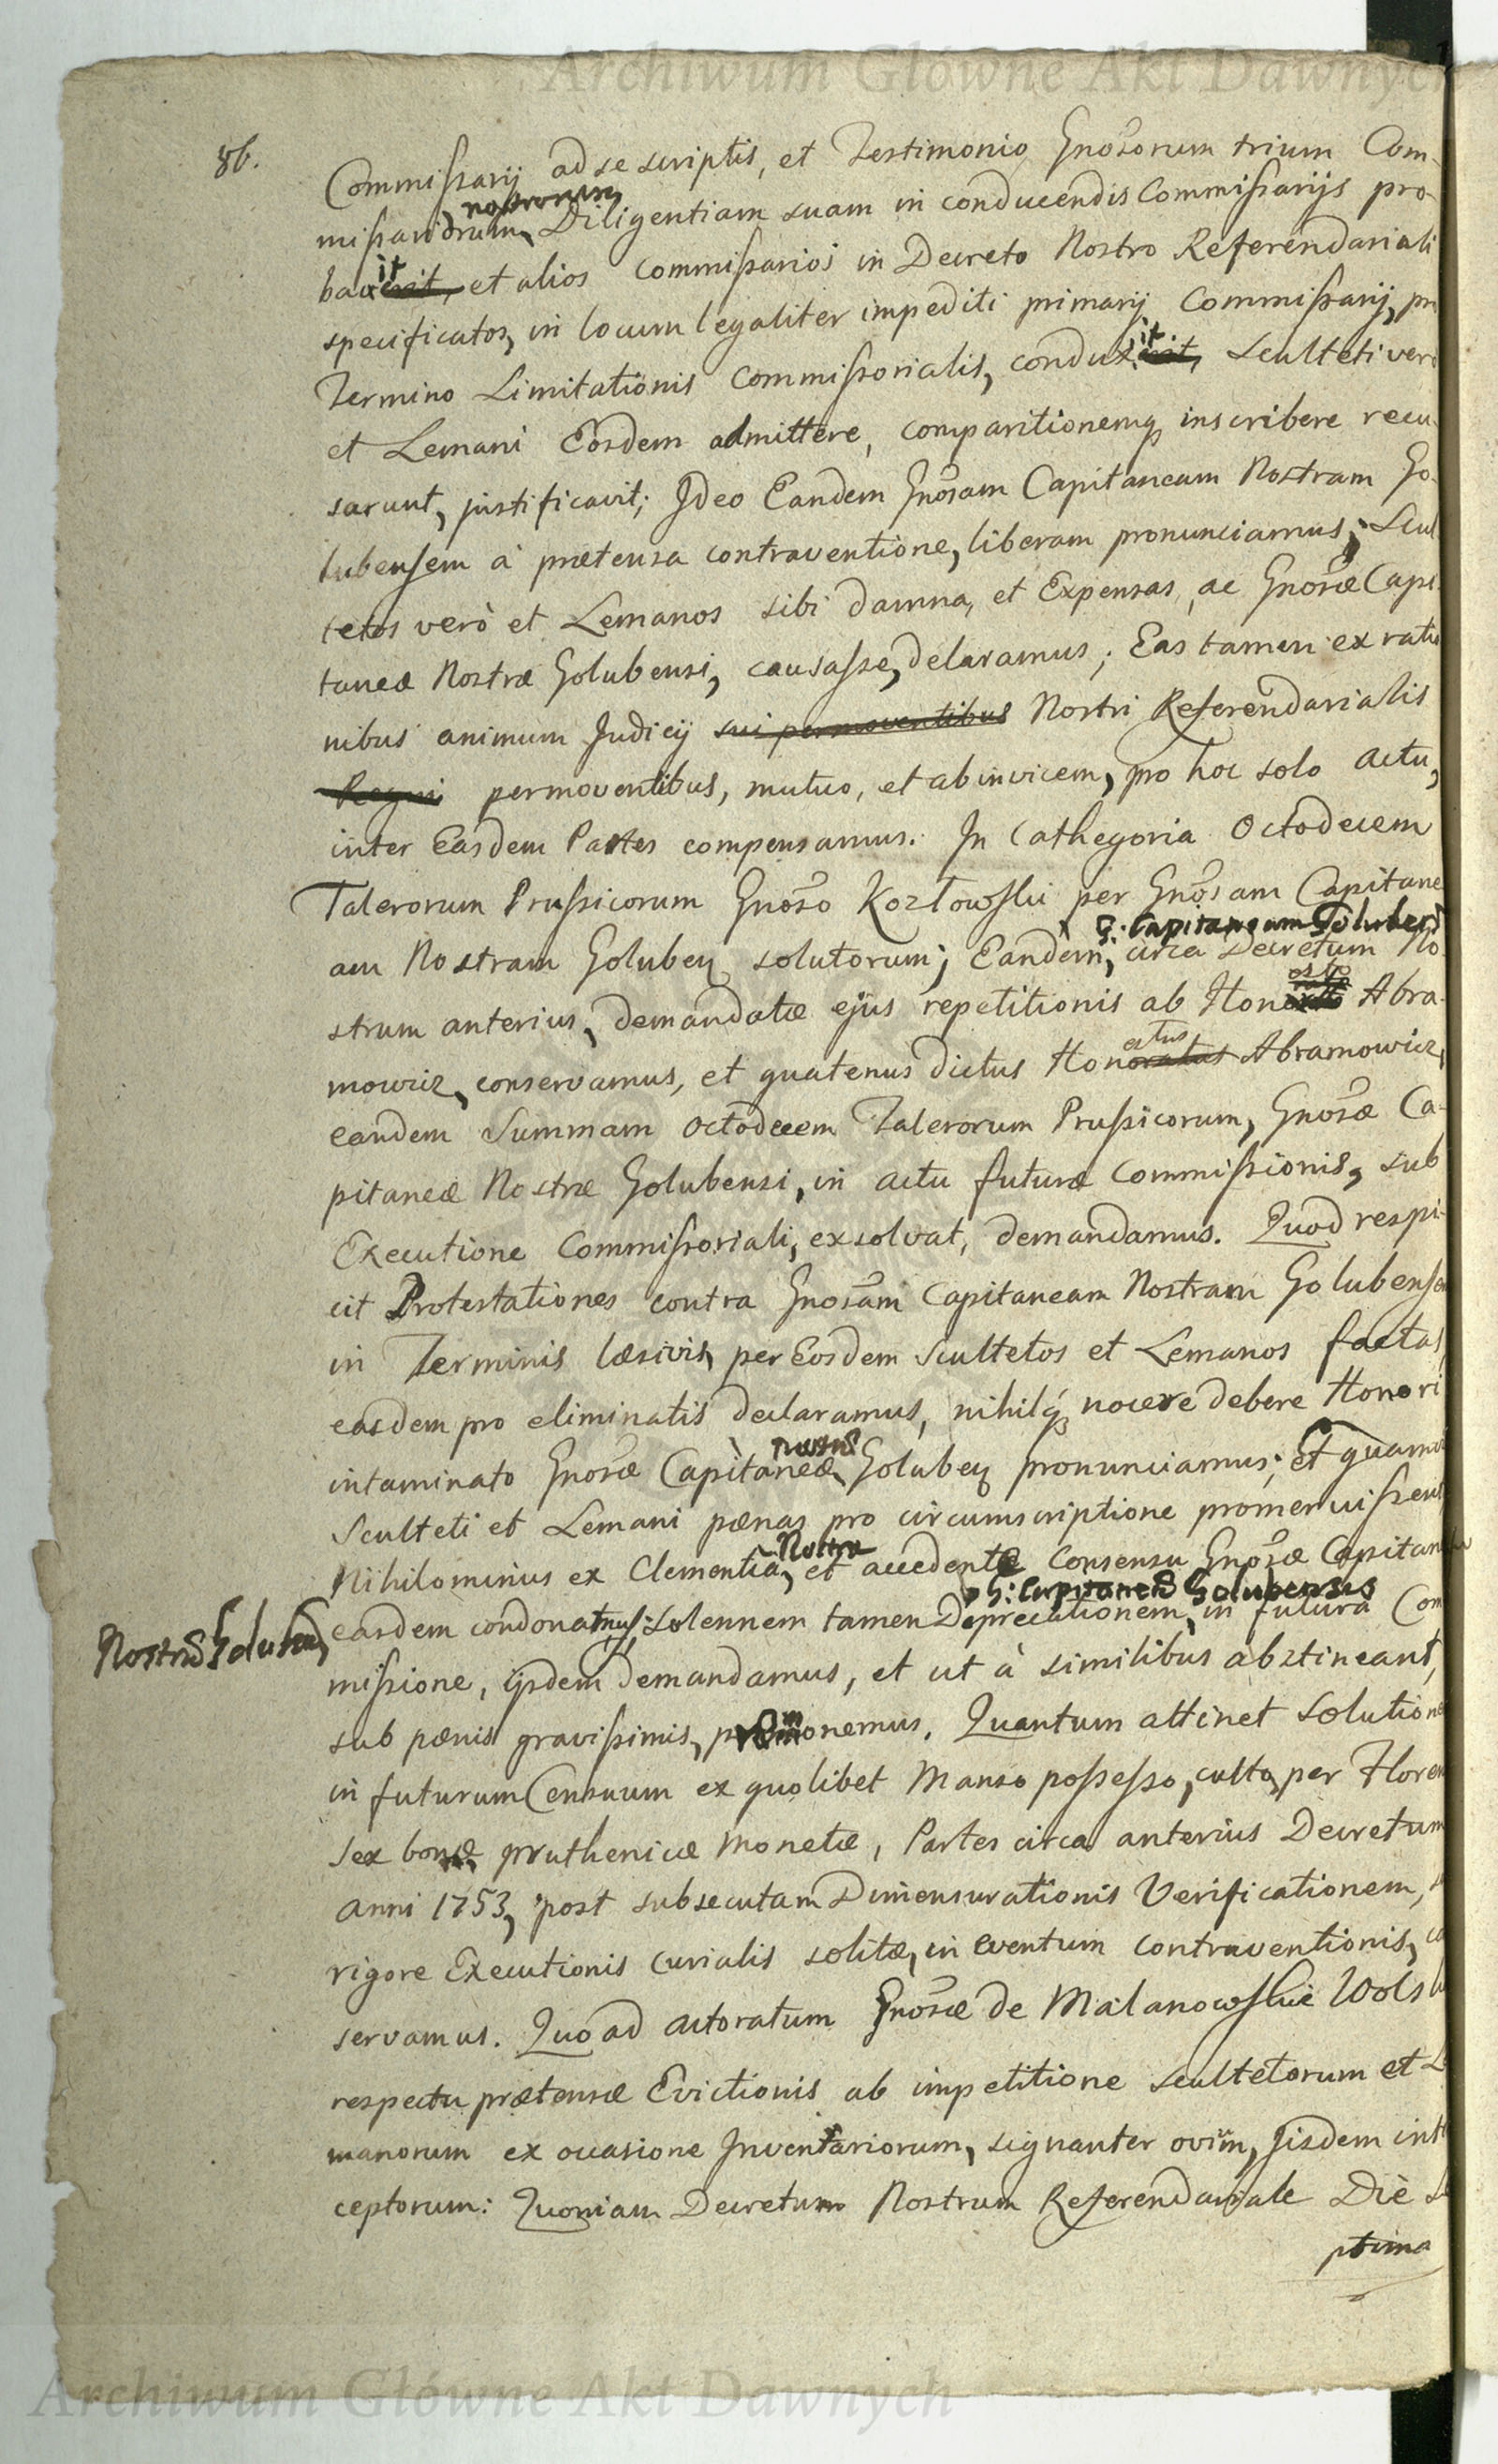 Archiwum Główne Akt Dawnych
86.
Commissarij ad se scriptis, et Testimonio Gnosorum trium Com-
nostrorum
missariorum, Diligentiam suam in conducendis Commissarijs pro-
bav it erit, et alios Commissarios in Decreto Nostro Referendariali
specificatos, in locum legaliter impediti primarij Commissarij, pro
Termino Limitationis Commissorialis, condux it erit, Sculteti vero
et Lemani Eosdem admittere, comparitionemq, inscribere recu-
sarunt, justificavit; Ideo Eandem Gnosam Capitaneam Nostram Go-
lubensem à prætensa contraventione, liberam pronunciamus; Scul
tetos verò et Lemanos sibi damna, et Expensas, ac Gnosæ Capi
taneæ Nostræ Golubensi, causasse, delaramus; Eas tamen ex ratio
nibus animum Judicij sui permoventibus Nostri Referendarialis
Regni permoventibus, mutuo, et ab invicem, pro hoc solo actu,
inter Easdem Partes compensamus. In Cathegoria Octodecem
Talerorum Prussicorum Gnoso Kozłowski per Gnosam Capitane
G: Capitaneam Goluben
am Nostram Goluben solutorum; Eandem, circa Decretum No-
strum anterius, demandatæ ejus repetitionis ab Hon esto Abra-
mowicz, conservamus, et quatenus dictus Hon estus oratus Abramowicz,
eandem Summam Octodecem Talerorum Prussicorum, Gnosæ Ca-
pitaneæ Nostræ Golubensi, in actu futuræ Commissionis, sub
Executione Commissoriali, exsolvat, demandamus. Quod respi-
cit Protestationes contra Gnosam Capitaneam Nostram Golubensem
in Terminis læsivis, per Eosdem Scultetos et Lemanos factas,
easdem pro eliminatis declaramus, nihilq, nocere debere Honori
intaminato Gnosæ Capitaneæ nostræ Goluben pronunciamus; Et quamvis
Sculteti et Lemani pænas pro circumscriptione promeruissent,
Nihilominus ex Clementia Nostra, et accedente Consensu Gnosæ Capitaneæ
Nostræ Goluben,
G: Capitaneæ Golubensis
easdem condonamus; Solennem tamen Deprecationem, in futura Com
missione, ijsdem demandamus, et ut à similibus abstineant,
sub pænis gravissimis, præmonemus. Quantum attinet Solutione
in futurum Censuum ex quolibet Manso possesso, culto, per Floren
sex bonæ pruthenicæ Monetæ, Partes circa anterius Decretum
Anni 1753, post subsecutam Dimensurationis Verificationem,
rigore Executionis Curialis solitæ, in eventum contraventionis, co
servamus. Quo ad actoratum Gnosæ de Malanowskie Wols
respectu prætensæ Evictionis ab impetitione Scultetorum et Le
manorum ex occasione Inventariorum, signanter ovium, Iisdem inte
ceptorum: Quoniam Decretum Nostrum Referendariale Diè Se
ptima
Archiwum Główne Akt Dawnych